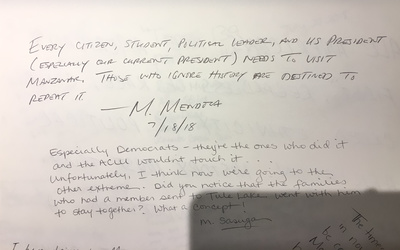 EVERY CITIZEN, STUDENT, POLITICAL LEADER, AND US PRESIDENT
(ESPECIALLY OUR CURRENT PRESIDENT) NEEDS TO VISIT
MANZANAR. THOSE WHO IGNORE HISTORY ARE DESTINED TO
REPEAT IT.
—M. MENDOZA
7/18/18
Especially Democrats - they're the ones who did it
and the ACLU wouldn't touch it . . .
Unfortunately, I think now we're going to the
other extreme. Did you notice that the families
who had a member sent to Tule Lake went with him
to stay together? What a concept!
M. Sasuga
The
in